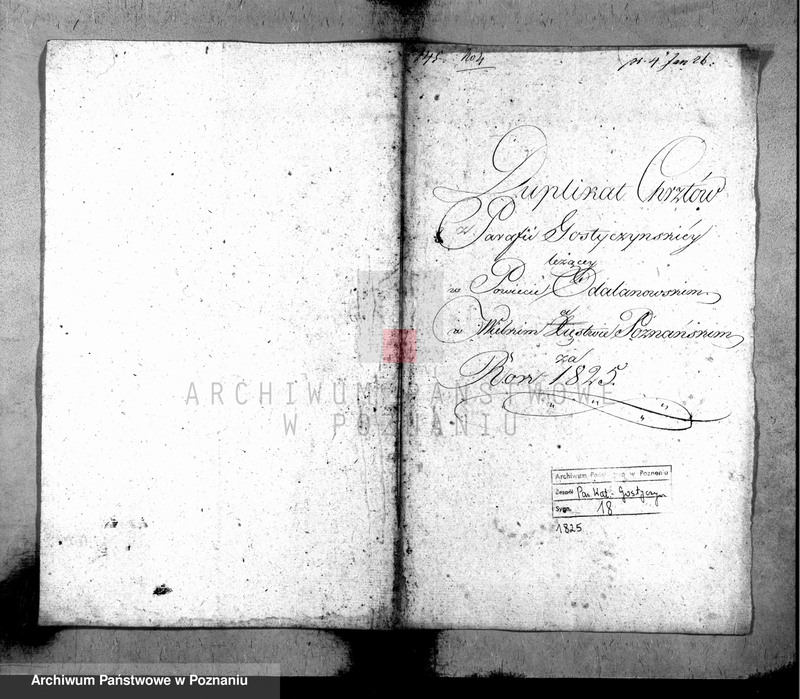 No 4
pr. 4 Jan 26.
Duplikat Chrztów
z Parafii Gostyczynskiéy
leżącey
w Powiecie Odalanowskim
w Wielkim Xięstwie Poznańskiem
za
Rok 1825.
ARCHIWUM PAŃSTWOWE
W POZNANIU
Archiwum Państwowe w Poznaniu
Zespół Par. Kat. Gostyczyn
Sygn. 18
1825
Archiwum Państwowe w Poznaniu